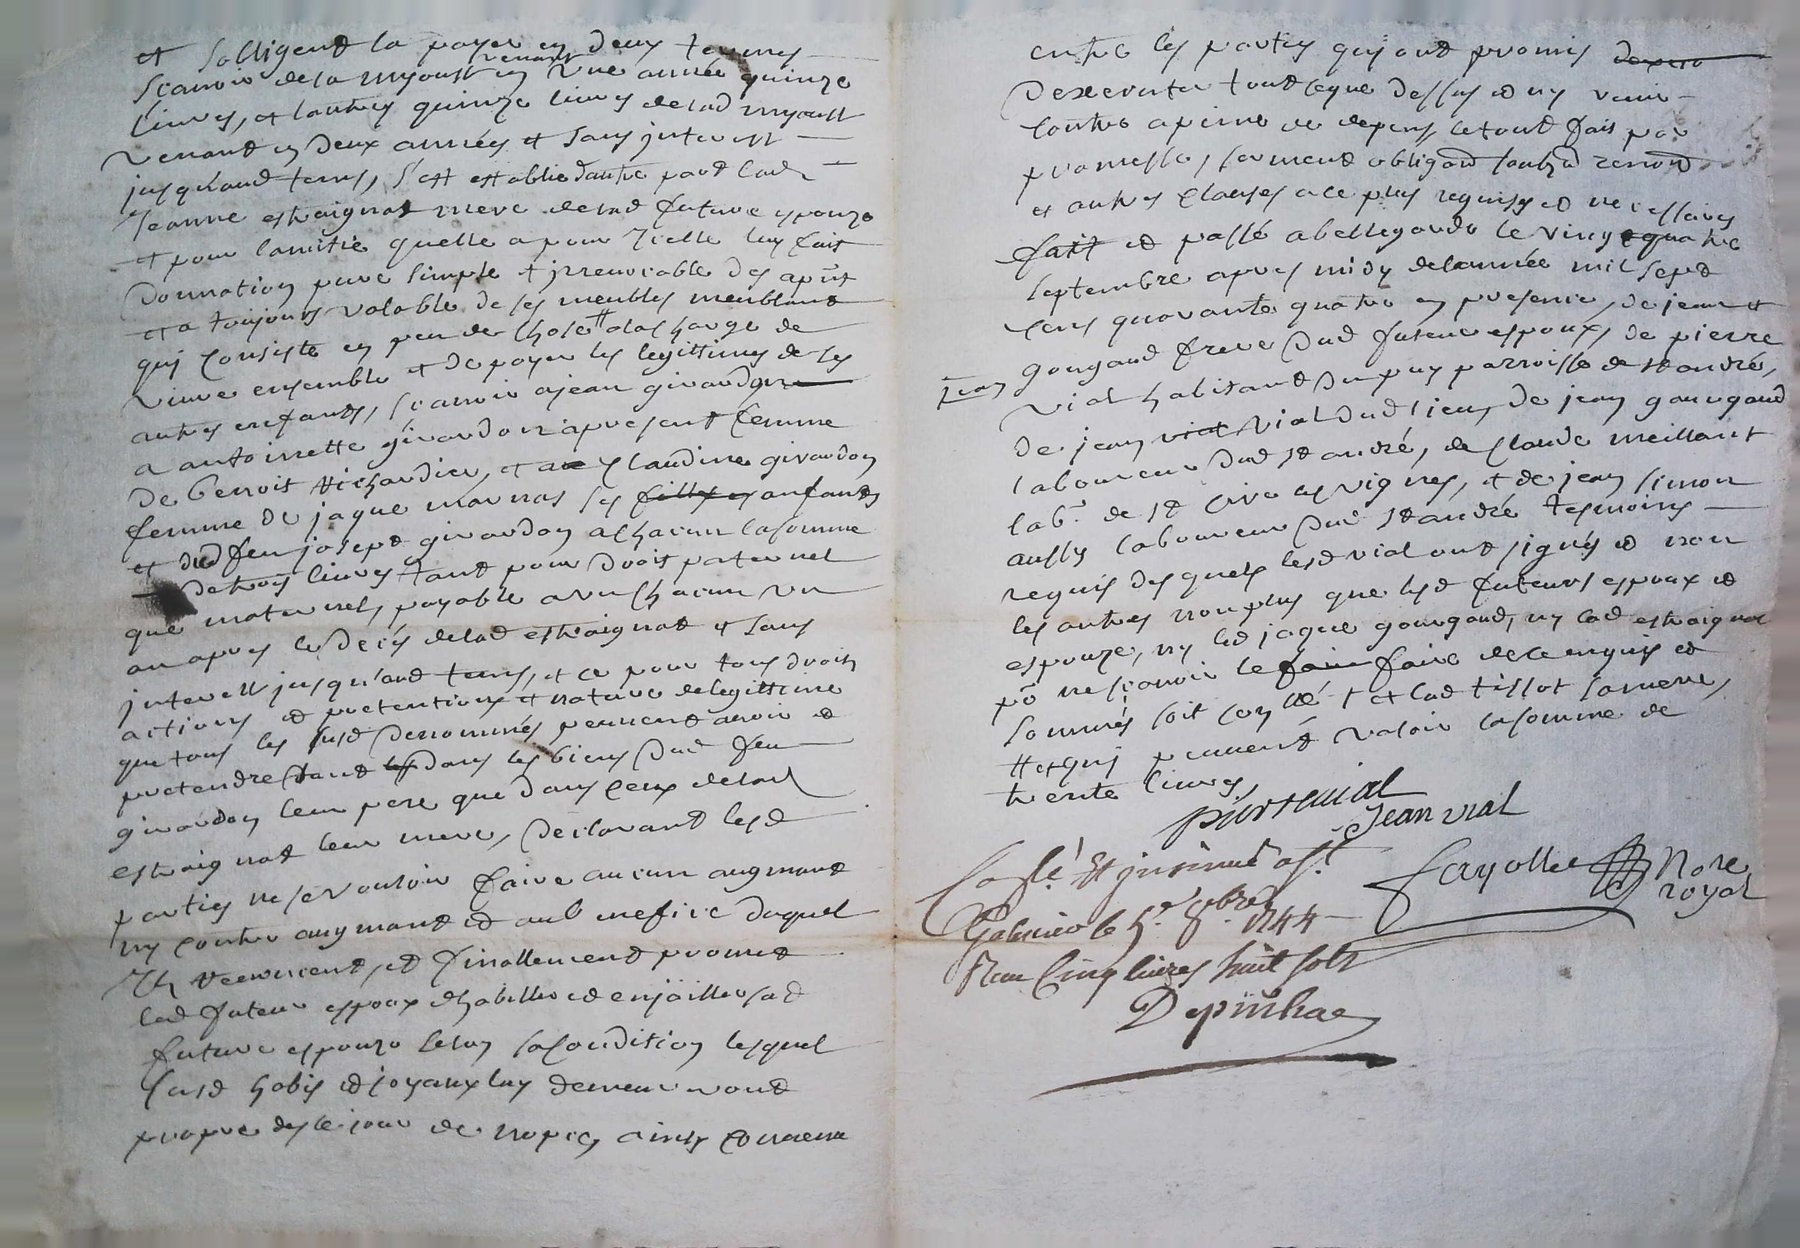 et sobligent la payer en deux termes
scavoir de la myoust venant en une année quinze
livres, et lautres quinze livres delad myoust
venant en deux années et sans interest
jusquaud tems, sest establie dautre part lad
Jeanne estraignat mere delad future espouze
et pour lamitié quelle a pour Icelle luy fait
donnation pure simple et irrevocable des apnt
et a toujours valable de ses meubles meublant
qui consiste en peu de chose # alacharge de
vivre ensemble et de payer les legittimes de ses
autres enfants, scavoir a jean girardon
a antoinette girardon apresent femme
de benoit richardier, et a claudine girardon
femme de jaque marnas ses filles enfants
et dud feu joseph girardon a chacun lasomme
de trois livres tant pour droit paternel
que maternel, payable a un chacun un
an apres le decés delad estraignat et sans
interest jusqu'aud tems, et ce pour tous droits
actions et pretentions et nature delegittime
que tous les susd denommés peuvent avoir et
pretendre tant dans les biens dud feu
girardon leur pere que dans ceux delad
estraignat leur mere, declarant lesd
parties ne se vouloir faire aucun augment
ny contre augment et au benefice duquel
Ils renoncent, et finallement promet
led futeur espoux dhabiller et enjoailler sad
future espouze selon sa condition lesquels
susd habis et joyaux luy demeureront
propre des le jour de nopces ainsy convenu
entre les parties qui ont promis
Dexecuter tout ceque dessus et ny venir
contre a peine de depens, letout fait par
promesse, serment obligaon soubzon renon
et autres clauses a ce plus requises et necessaires
fait et passé a bellegarde le vingt quatre
septembre apres midy delannée mil sept
cens quarante quatre en presence, de jean
gougaud frere dud futeur espoux, de pierre
Jean
vial habitant du puy parroisse de st andré,
de jean vial vial dud lieu, de jean gourgaud
laboureur dud st andré, de claude meillant
labr de st cire les vignes, et de jean simon
aussy laboureur dud st andré tesmoins
requis desquels lesd vial ont signés et non
les autres non plus que lesd futeurs espoux et
espouze, ny led jaque gourgaud, ny lad estraignat
pr ne scavoir le faire faire de ce enquis et
sommés soit con lle et lad tissot samere,
# et qui peuvent valoir lasomme de
trente livres,
pierre vial
Jean vial
Fayolle Nore
royal
Conlé Et insinué a St
Galmier le 5e 8bre 1744
Reçu Cinq livres huit sols
Depinhac